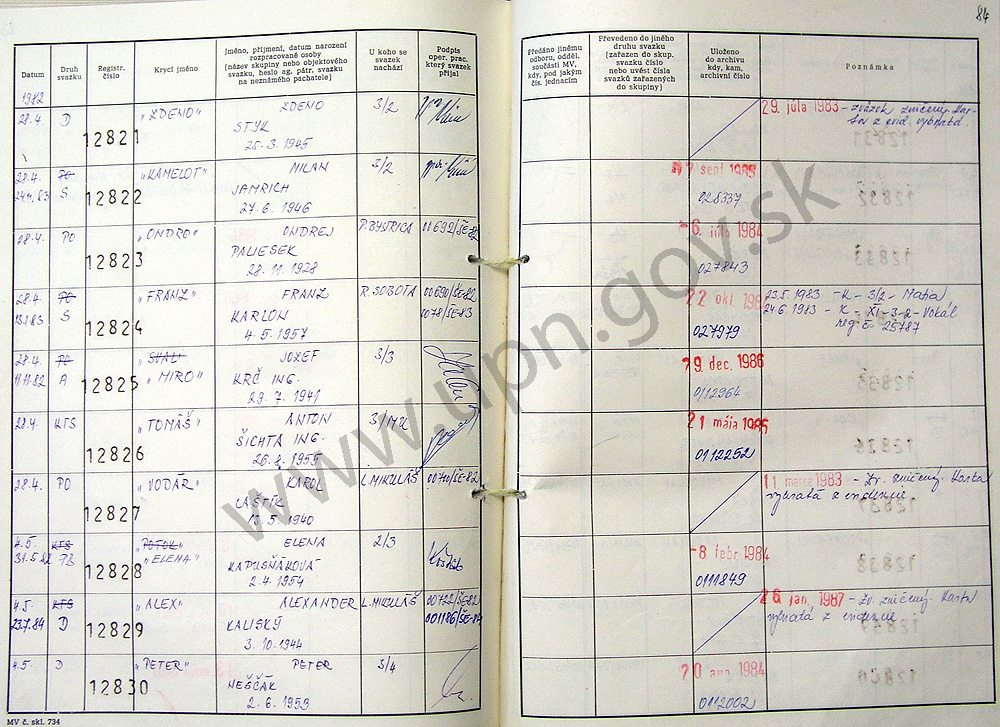 84
Datum
Druh svazku
Registr. číslo
Krycí jméno
Jméno, příjmení, datum narození rozpracované osoby (název skupiny nebo objektového svazku, heslo ag. pátr. svazku na neznámého pachatele)
U koho se svazek nachází
Podpis oper. prac. který svazek přijal
Předáno jinému odboru, odděl. součásti MV, kdy, pod jakým čís. jednacím
Převedeno do jiného druhu svazku (zařazen do skup. svazku číslo nebo uvést čísla svazků zařazených do skupiny)
Uloženo do archivu kdy, kam, archivní číslo
Poznámka
1982
28.4. D 12821 "ZDENO" ZDENO 3/2 29. júla 1983 - zväzok zničený
STYK
28-3.1945
28.4. PO 12822 "KAMELOT" MILAN 3/2 sept 1983
S JAMRICH 028337
27.6.1946
28.4. PO 12823 "ONDRO" ONDREJ P.BYSTRICA 00692/ŠE-82 1984
PALIESEK 027843
28.11.1928
28.4. PO 12824 "FRANZ" FRANZ R.SOBOTA 00690/ŠE-82 22 okt. 23.5.1983 - K - 3/2 -
S KARLON 0078/ŠE-83 027979 24.6.1983 - K - XI - 3-2 - Vokál
4.5.1957 reg. č. 25787
28.4. PO 12825 JOZEF 3/3 dec. 1986
11.11.82 A "MIRO" KRČ ING. 0112964
29.7.1941
28.4. KTS 12826 "TOMÁŠ" ANTON 21 mája
ŠICHTA ING. 0112252
26.8.1955
28.4. PO 12827 "VODÁR" KAROL L.MIKULÁŠ 00710/ŠE-82 11 marca 1983 - Zv. zničený. Karta
LAŠTÍK vybratá z evidencie
1940
4.5. KTS 12828 "POTOK" ELENA 2/3 -8 febr 1984
31.5.82 "ELENA" KAPUŠŇÁKOVÁ 0111849
2.4.1954
4.5. KTS 12829 "ALEX" ALEXANDER L.MIKULÁŠ 00722/ŠE-82 26 jan. 1987 - Zv. zničený. Karta
23.7.84 D KALISKÝ 001186/ŠE-84 vybratá z evidencie
3.10.1944
4.5. D 12830 "PETER" PETER 3/4 20 aug 1984
HEŠČÁK 0112002
2.6.1953
MV č. skl. 734
www.upn.gov.sk